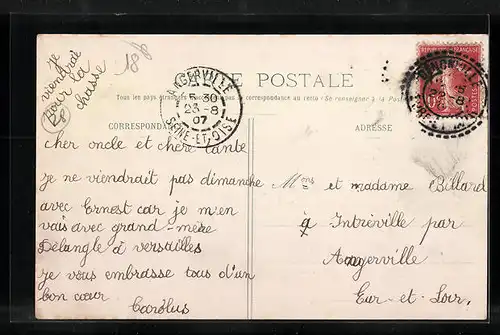 je
viendrai
pour la
chasse
18
CARTE POSTALE
ANGERVILLE
5 30
23 -8
07
SEINE-ET-OISE
REPUBLIQUE FRANÇAISE
Tous les pays étrangers
pas la correspondance au recto (Se renseigner à la Poste)
CORRESPONDANCE
ADRESSE
cher oncle et chère tante
je ne viendrait pas dimanche
avec Ernest car je m'en
vais avec grand-mère
Délangle à versailles
je vous embrasse tous d'un
bon cœur
Carolus
Mons et madame Billard
à Intréville par
Angerville
Eur-et-Loir.